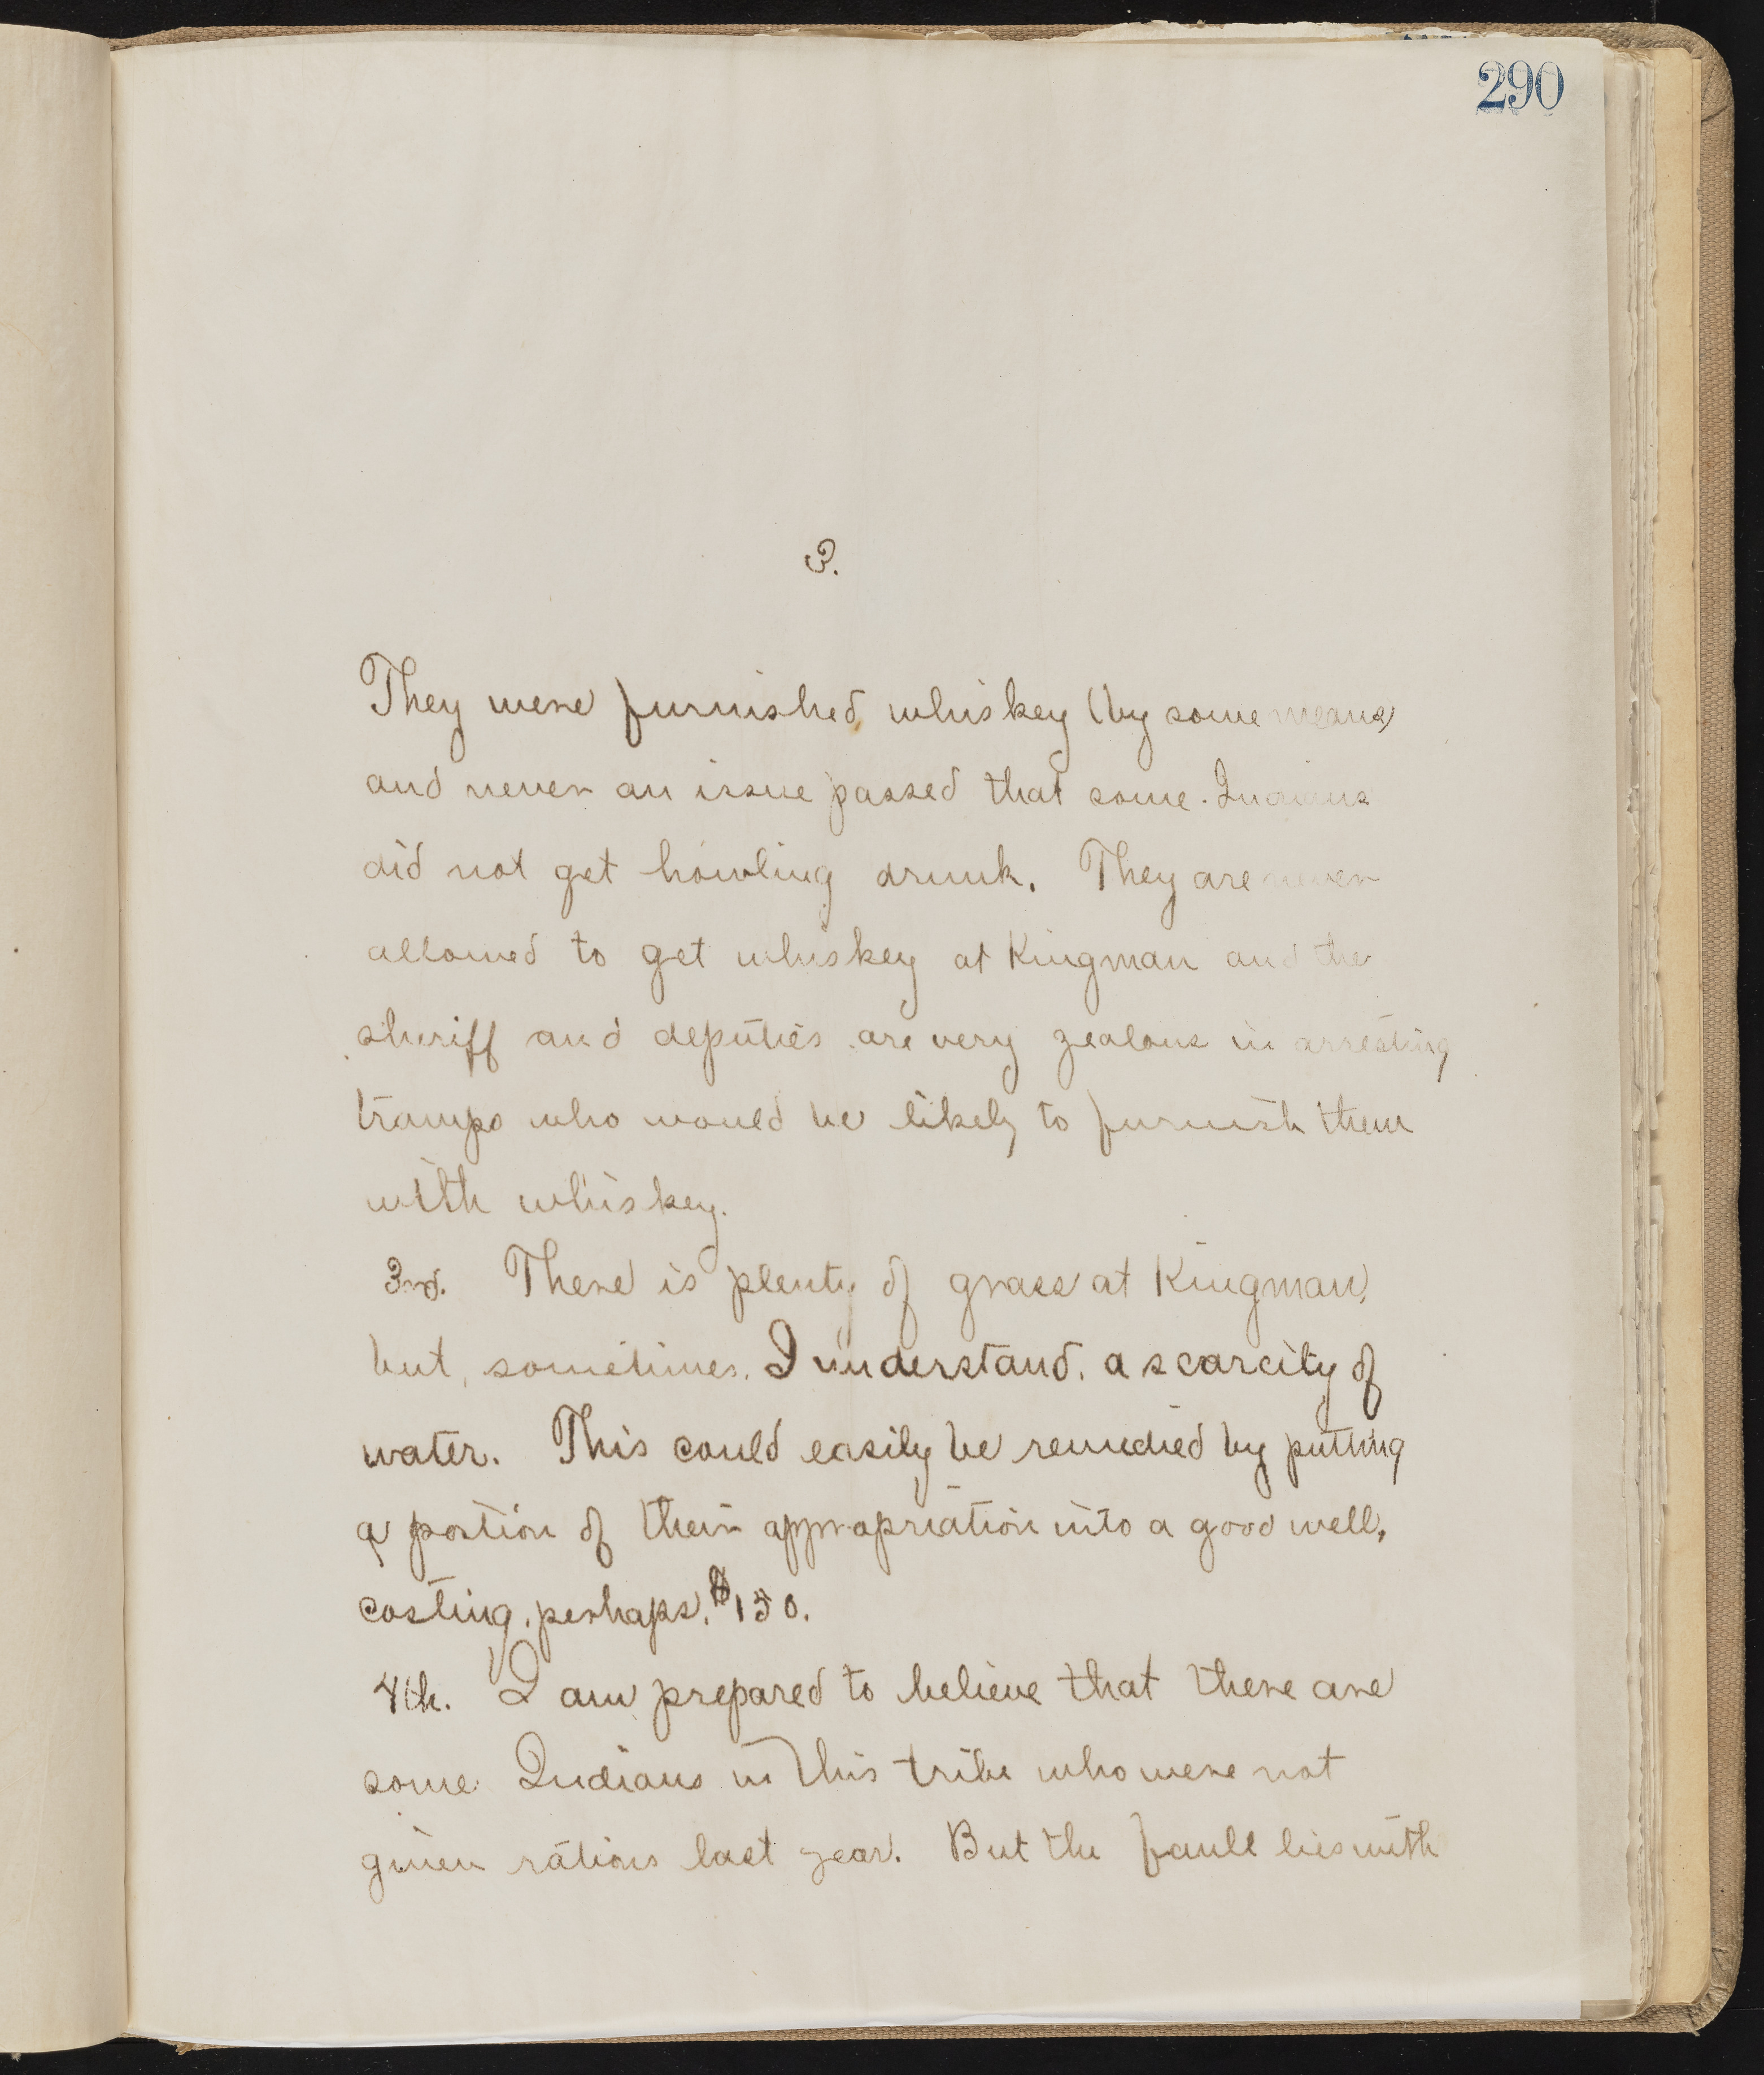 290
3.
They were furnished whiskey (by some means)
and never an issue passed that some Indians
did not get howling drunk. They are never
allowed to get whiskey at Kingman and the
sheriff and deputies are very zealous in arresting
tramps who would be likely to furnish them
with whiskey.
3rd. There is plenty of grass at Kingman,
but, sometimes, I understand, a scarcity of
water. This could easily be remedied by putting
a portion of their appropriation into a good well,
costing, perhaps, $150.
4th. I am prepared to believe that there are
some Indians in this tribe who were not
given rations last year. But the fault lies with